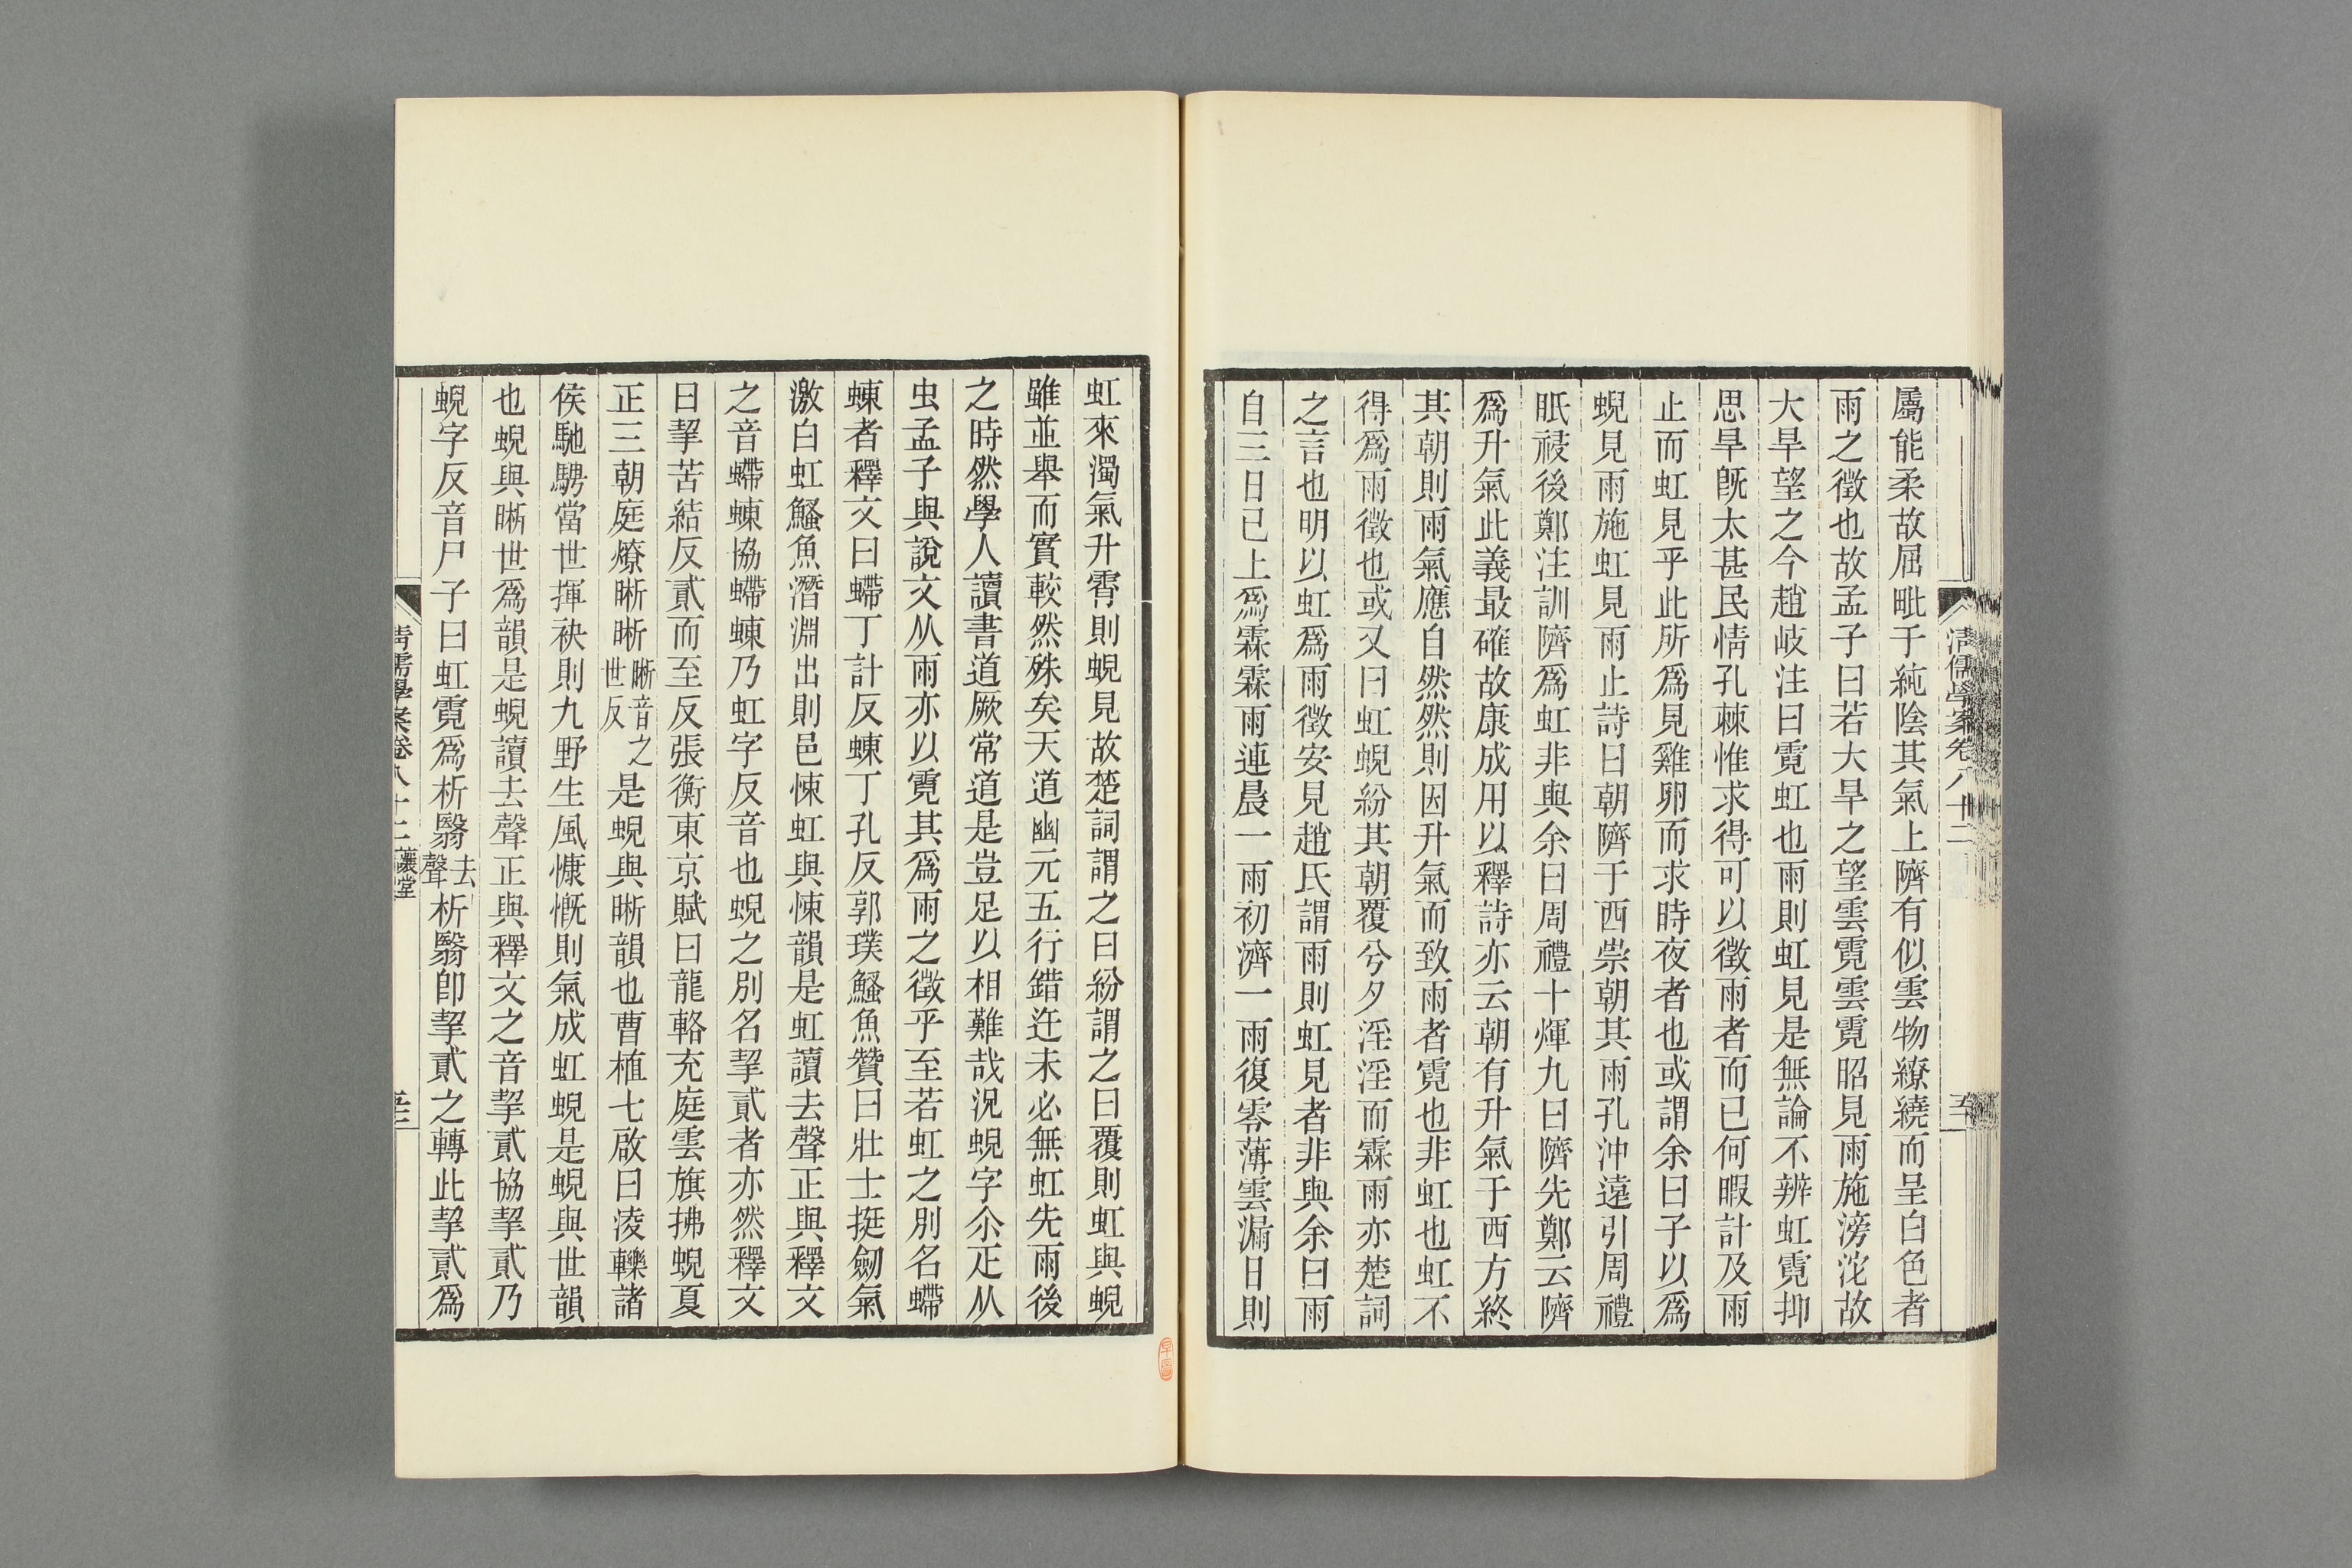 屬能柔故屈毗于純陰其氣上隮有似雲物繚繞而呈白色者
雨之徵也故孟子曰若大旱之望雲霓雲霓昭見雨施滂沱故
大旱望之今趙岐注曰霓虹也雨則虹見是無論不辨虹霓抑
思旱旣太甚民情孔棘惟求得可以徵雨者而已何暇計及雨
止而虹見乎此所爲見雞卵而求時夜者也或謂余曰子以爲
蜺見雨施虹見雨止詩曰朝隮于西崇朝其雨孔沖遠引周禮
眂祲後鄭注訓隮爲虹非與余曰周禮十煇九曰隮先鄭云隮
爲升氣此義最確故康成用以釋詩亦云朝有升氣于西方終
其朝則雨氣應自然然則因升氣而致雨者霓也非虹也虹不
得爲雨徵也或又曰虹蜺紛其朝覆兮夕淫淫而霖雨亦楚詞
之言也明以虹爲雨徵安見趙氏謂雨則虹見者非與余曰雨
自三日已上爲霖霖雨連晨一雨初濟一雨復零薄雲漏日則
清儒學案卷八十二
虹來濁氣升霄則蜺見故楚詞謂之曰紛謂之曰覆則虹與蜺
雖並舉而實較然殊矣天道幽元五行錯迕未必無虹先雨後
之時然學人讀書道厥常道是豈足以相難哉況蜺字尒疋从
虫孟子與說文从雨亦以霓其爲雨之徵乎至若虹之別名螮
蝀者釋文曰螮丁計反蝀丁孔反郭璞鰠魚贊曰壯士挺劒氣
激白虹鰠魚潛淵出則邑悚虹與悚韻是虹讀去聲正與釋文
之音螮蝀協螮蝀乃虹字反音也蜺之別名挈貳者亦然釋文
曰挈苦結反貳而至反張衡東京賦曰龍輅充庭雲旗拂蜺夏
正三朝庭燎晣晣晣音之世反是蜺與晣韻也曹植七啟曰淩轢諸
侯馳騁當世揮袂則九野生風慷慨則氣成虹蜺是蜺與世韻
也蜺與晣世爲韻是蜺讀去聲正與釋文之音挈貳協挈貳乃
蜺字反音尸子曰虹霓爲析翳去聲析翳卽挈貳之轉此挈貳爲
清儒學案卷八十二